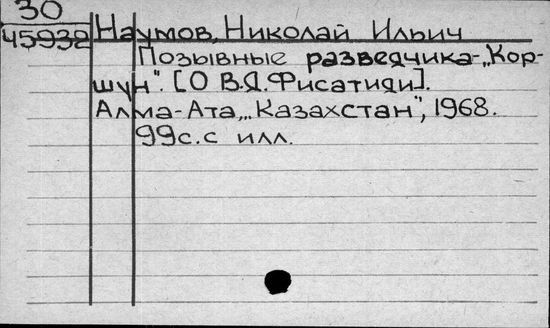 30
45932 Наумов, Николай Ильич
Позывные разведчика-„Кор-
шун". [О В.Я.Фисатиди].
Алма-Ата, „Казахстан", 1968.
99с.с илл.